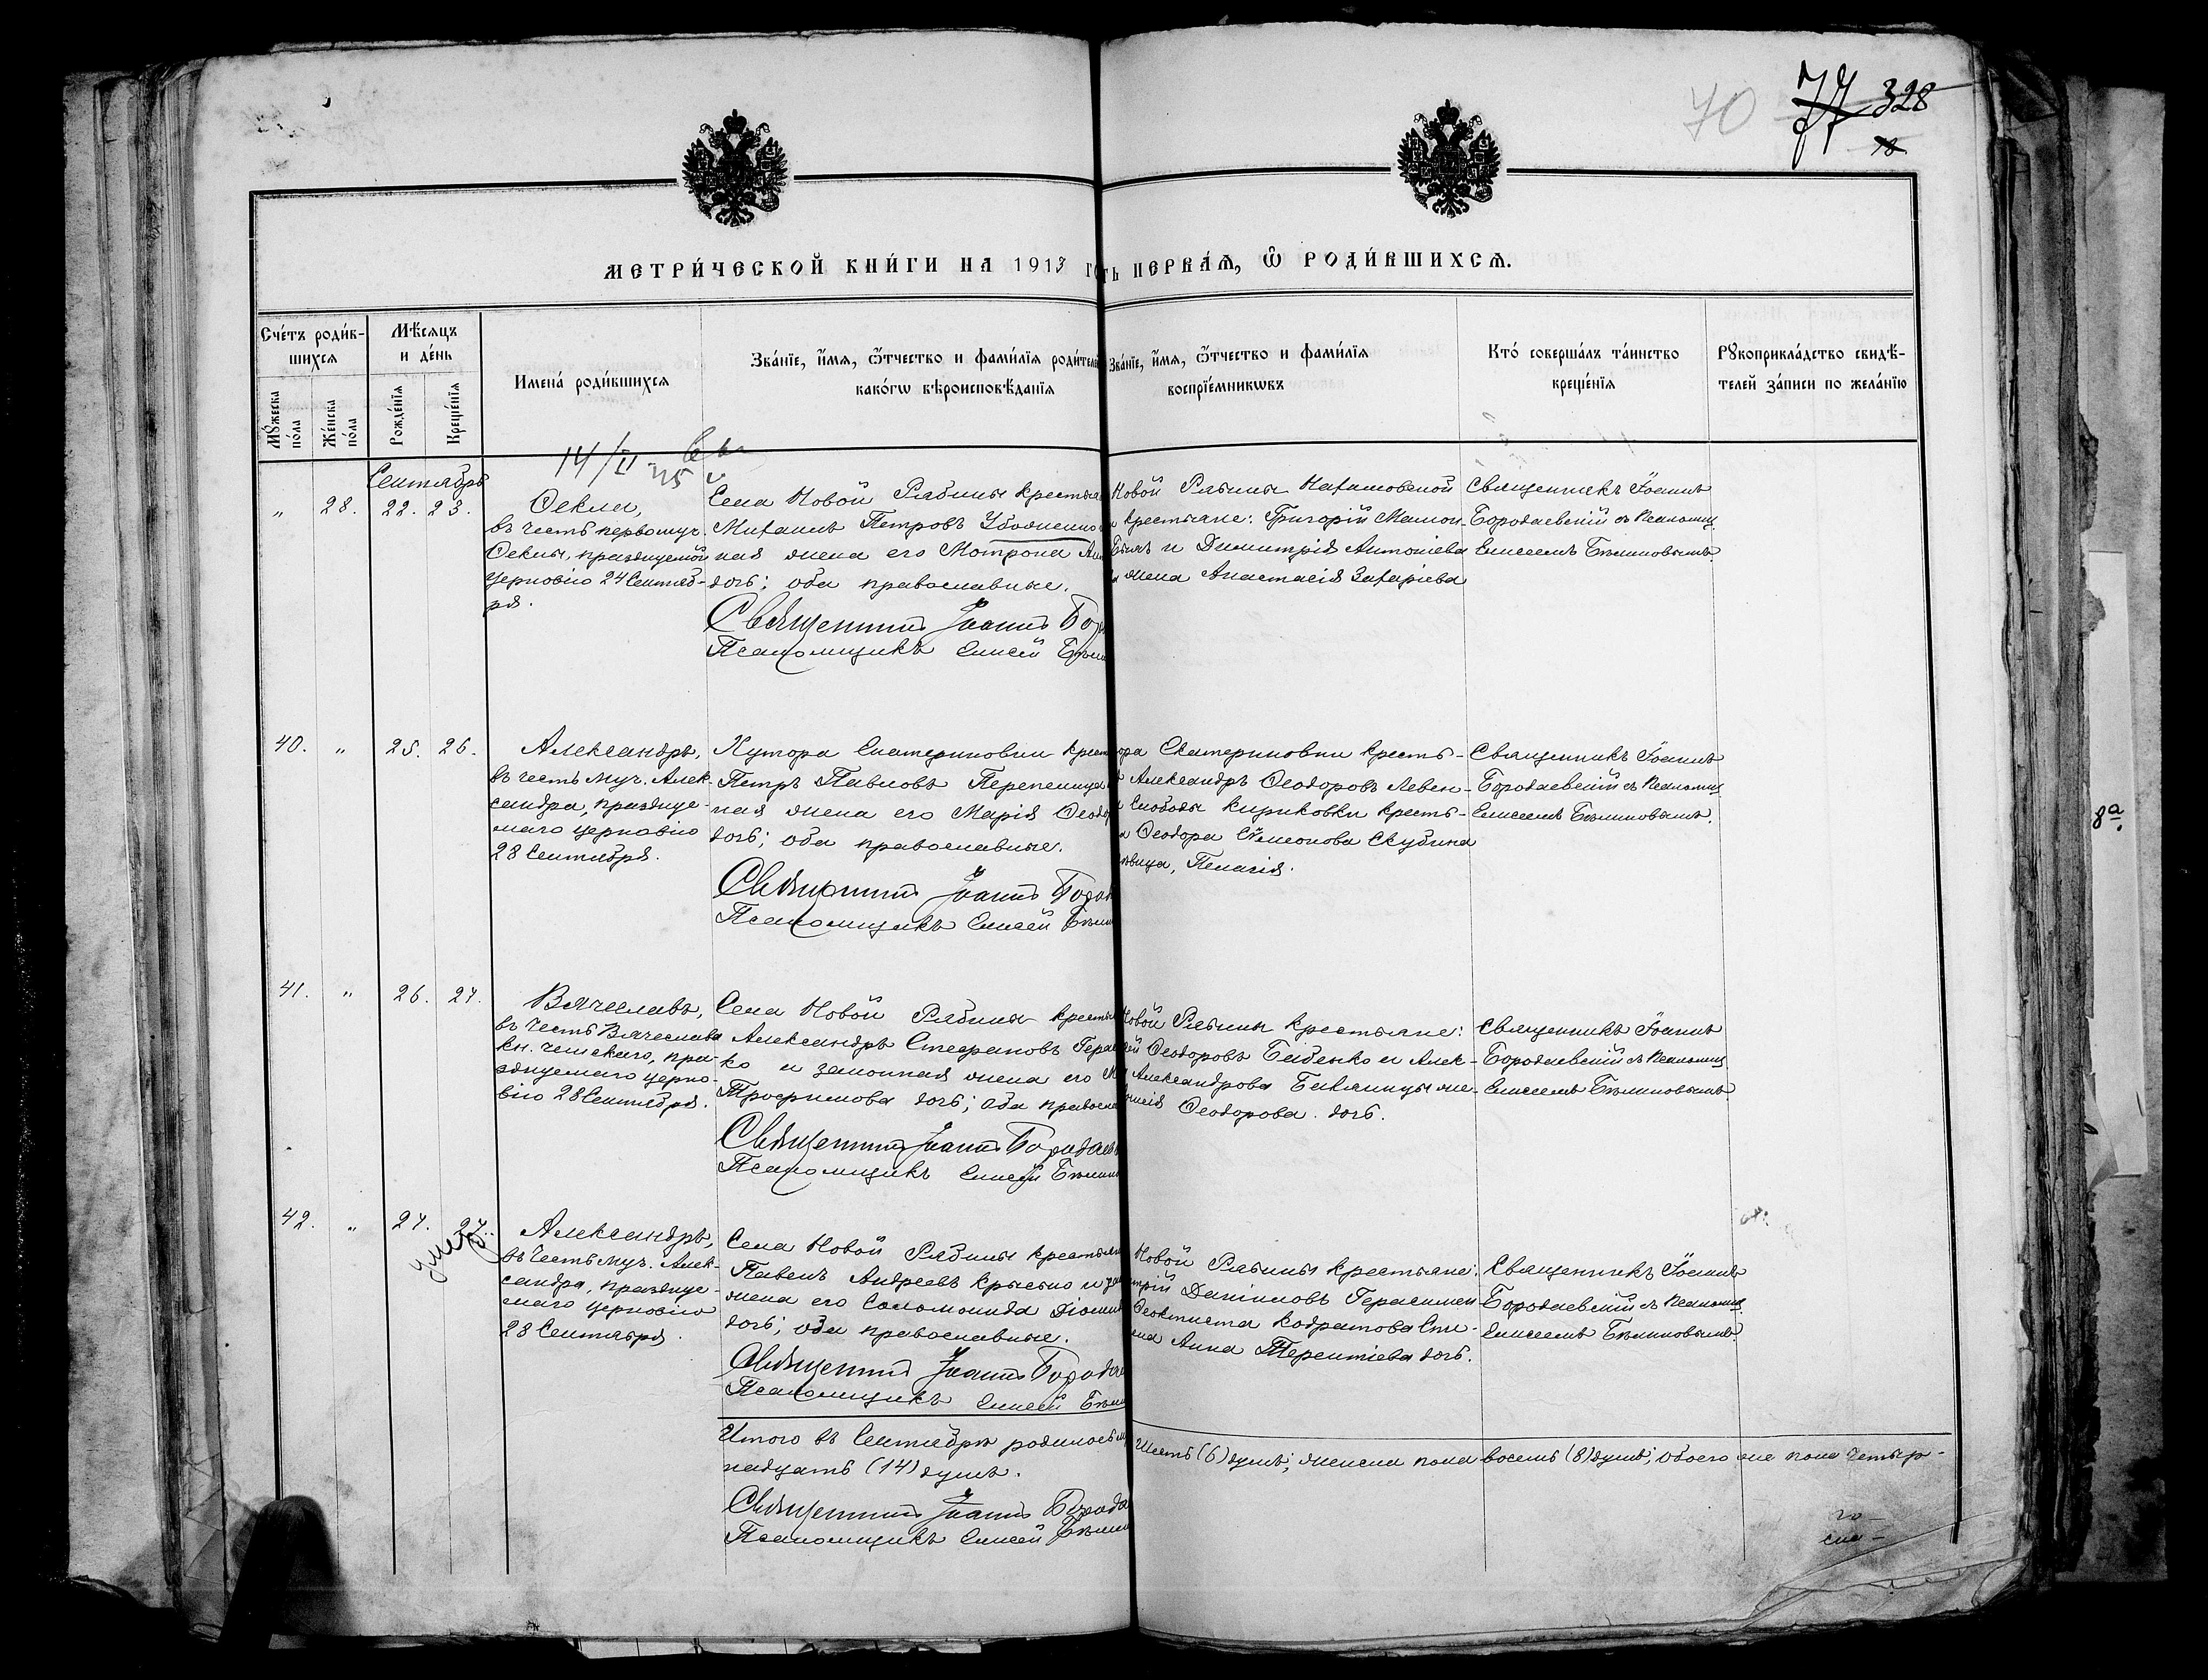 70 77 328
МЕТРИ́ЧЕСКОЙ КНИ́ГИ НА 1913 ГО
ТЬ ПЕРВА́Ѧ, Ѿ РОДИ́ВШИХСѦ.
Сче́тъ роди́в-
шихсѧ
Мѣ́сѧцъ
и де́нь
Мꙋ́жеска по́ла
Же́нска по́ла
Рожде́нїѧ
Креще́нїѧ
Имена́ роди́вшихсѧ
Зва́нїе, и҆́мѧ, ѻ҆́тчество и фами́лїѧ роди́телей
како́гѡ вѣроисповѣ́данїѧ
Зва́нїе, и҆́мѧ, ѻ҆́тчество и фами́лїѧ
воспрїе́мникѡвъ
Кто́ соверша́лъ та́инство
креще́нїѧ
Рꙋкоприкла́дство свидѣ́-
телей за́писи по жела́нїю
14/II 45
Сентябрь
" 28. 22. 23.
Ѳекла,
въ честь первомуч.
Ѳеклы, празднуемой
церковію 24 Сентяб-
ря.
Села Новой Рябины крестья
Михаилъ Петровъ
ная жена его Мотрона
дочь; оба православные.
Священникъ Іоаннъ Бо
Псаломщикъ Елисей Бѣли
Новой Рябины
крестьяне: Григорій Мамон
и Димитрія Антоніева
жена Анастасія Захаріева
Священникъ Іоаннъ
Бородаевскій съ Псаломщ.
Елисеемъ Бѣликовымъ.
40. " 25. 26.
Александръ,
въ честь муч. Алек-
сандра, празднуе-
маго церковію
28 Сентября.
Хутора Екатериновки крест
Петръ Павловъ Перепелица
ная жена его Марія Ѳеодо
дочь; оба православные.
Священникъ Іоаннъ Бород
Псаломщикъ Елисей Бѣли
ора Екатериновки кресть-
Александръ Ѳеодоровъ Левен-
Слободы Кириковки кресть-
Ѳеодора Сѵмеонова Скубина
ѣвица, Пелагія.
Священникъ Іоаннъ
Бородаевскій съ Псаломщ.
Елисеемъ Бѣликовымъ.
41. " 26. 27.
Вячеславъ,
въ честь Вячеслава
кн. чешскаго, пра-
зднуемаго церко-
вію 28 Сентября.
Села Новой Рябины крестья
Александръ Стефановъ Гера
ко и законная жена его М
Трофимова дочь; оба правосла
Священникъ Іоаннъ Бородаев
Псаломщикъ Елисей Бѣлик
Новой Рябины крестьяне:
ѣй Ѳеодоровъ Бабенко и Алек-
Александрова жe-
Ѳеодорова дочь.
Священникъ Іоаннъ
Бородаевскій съ Псаломщ.
Елисеемъ Бѣликовымъ
42. " 27. 27.
умер.
Александръ,
въ честь муч. Алек-
сандра, празднуе-
маго церковію
28 Сентября.
Села Новой Рябины крестьян
Павелъ Андреевъ Крысько и за
жена его Соломонида Діомид
дочь; оба православные.
Священникъ Іоаннъ Борода
Псаломщикъ Елисей Бѣли
Новой Рябины крестьяне:
трій Даніиловъ Герасимен
Ѳеоктиста Кодратова
на Анна Терентіева дочь.
Священникъ Іоаннъ
Бородаевскій съ Псаломщ.
Елисеемъ Бѣликовымъ.
Итого въ Сентябрѣ родилось м
надцать (14) душъ.
Шесть (6) душъ; женска пола восемь (8) душъ; обоего же пола четыр-
Священникъ Іоаннъ Борода
Псаломщикъ Елисей Бѣлик
8а.